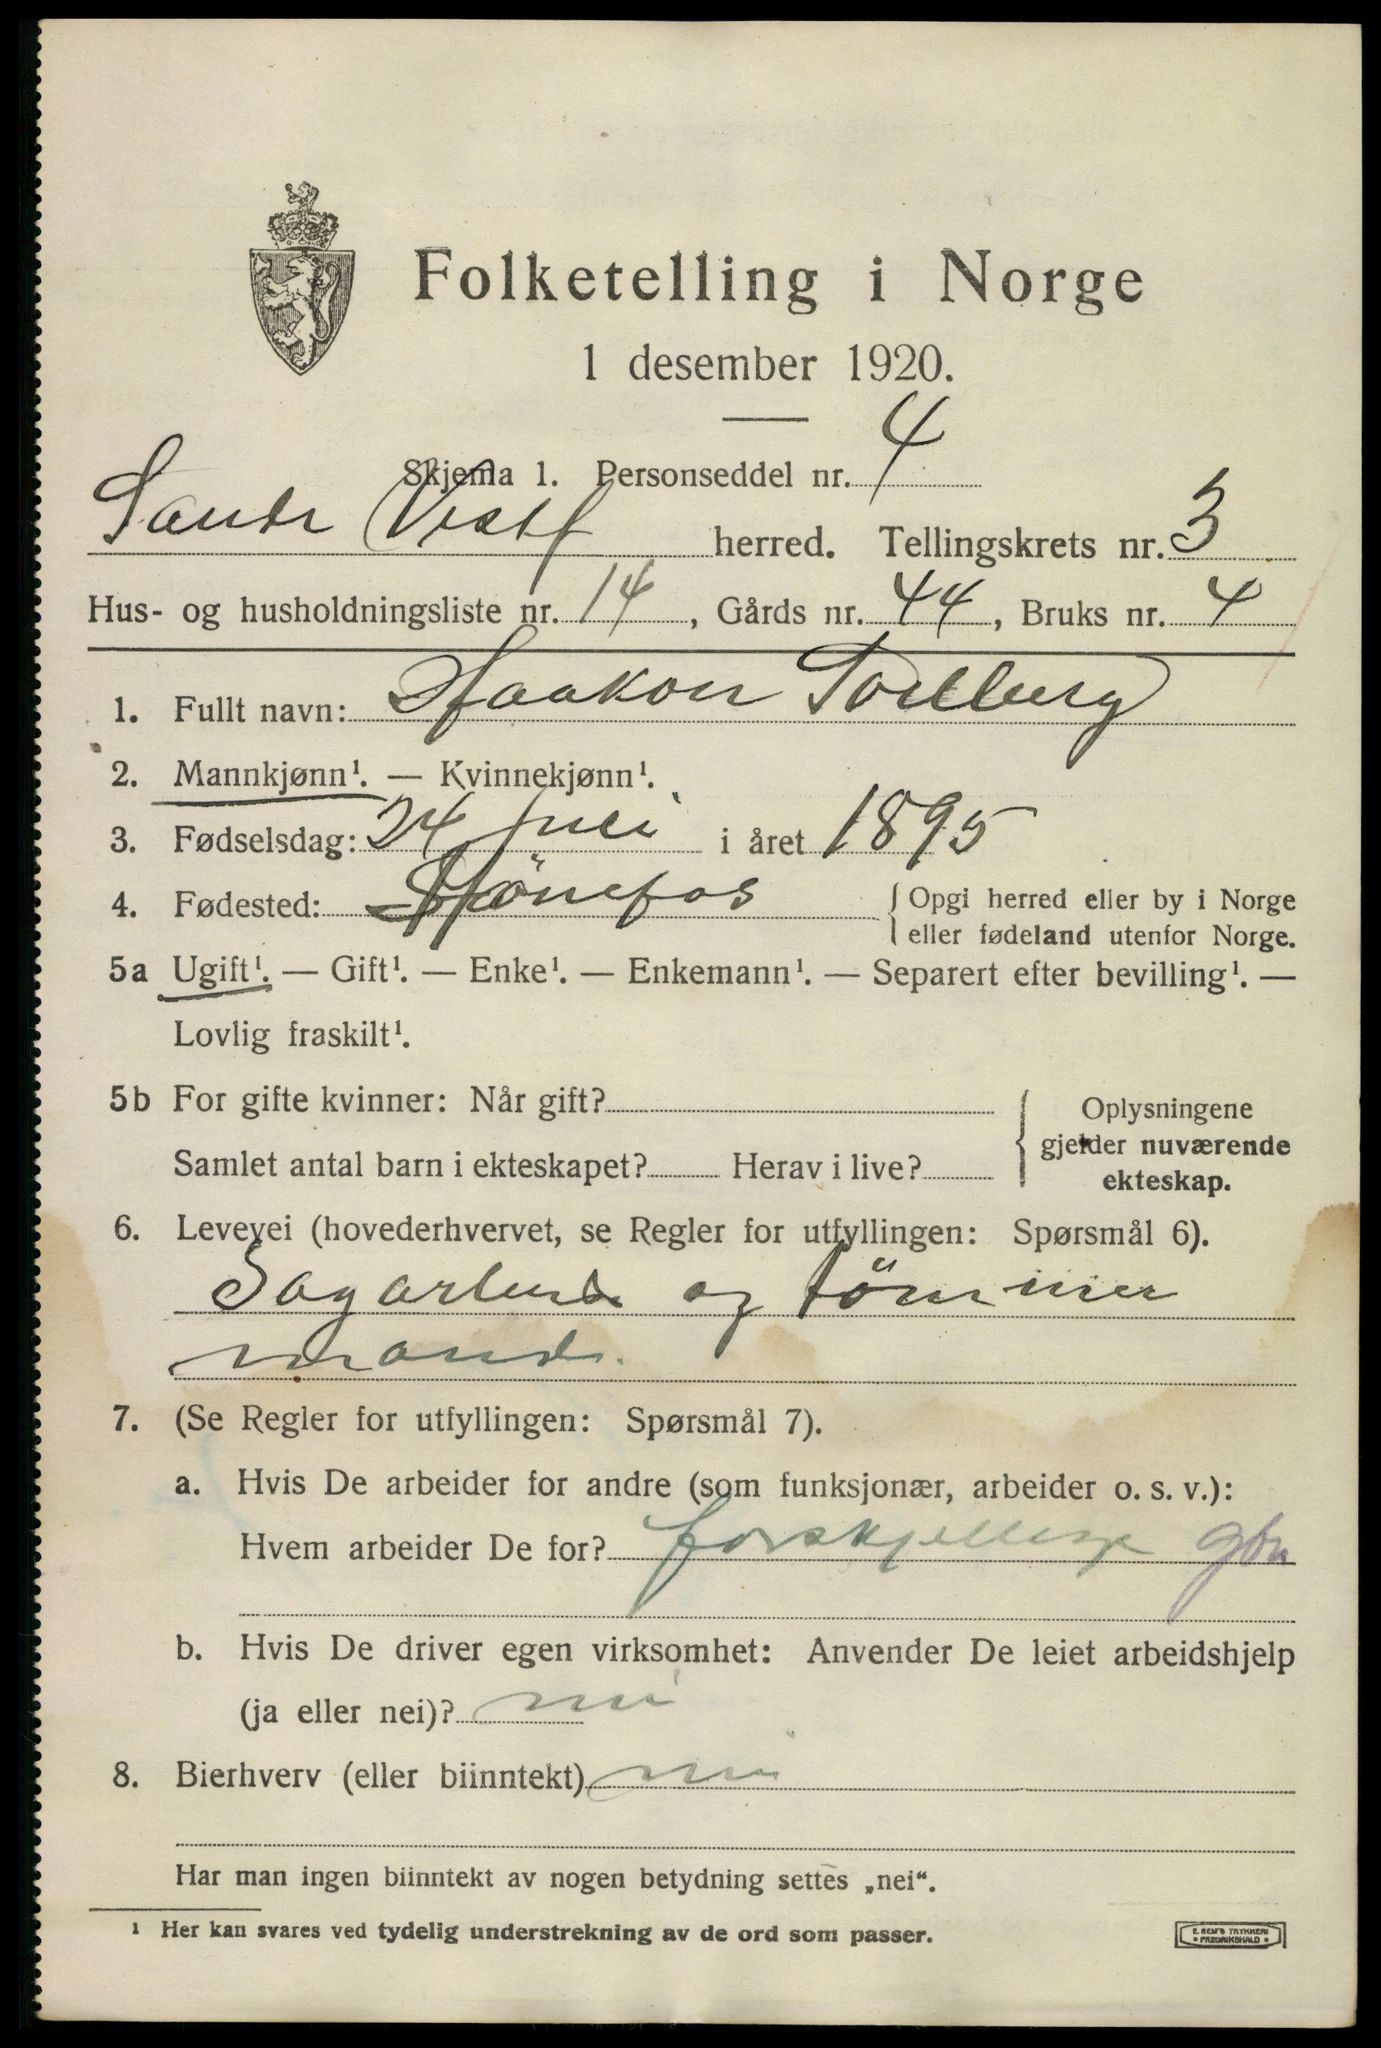 Folketelling i Norge
1 desember 1920.
Skjema 1. Personseddel nr. 4
Sande Vestf herred. Tellingskrets nr. 3
Hus- og husholdningsliste nr. 14, Gårds nr. 44, Bruks nr. 4
1. Fullt navn: Haakon
2. Mannkjønn¹. — Kvinnekjønn¹.
3. Fødselsdag: 24 i året 1895
4. Fødested: Hönefos { Opgi herred eller by i Norge
eller fødeland utenfor Norge.
5a Ugift¹. — Gift¹. — Enke¹. — Enkemann¹. — Separert efter bevilling¹. —
Lovlig fraskilt¹.
5b For gifte kvinner: Når gift?
Samlet antal barn i ekteskapet? Herav i live?
Oplysningene
gjelder nuværende
ekteskap.
6. Levevei (hovederhvervet, se Regler for utfyllingen: Spørsmål 6).
Sagarbeid og tömmer
mand.
7. (Se Regler for utfyllingen: Spørsmål 7).
a. Hvis De arbeider for andre (som funksjonær, arbeider o. s. v.):
Hvem arbeider De for? forskjellige
b. Hvis De driver egen virksomhet: Anvender De leiet arbeidshjelp
(ja eller nei)? nei
8. Bierhverv (eller biinntekt) nei
Har man ingen biinntekt av nogen betydning settes „nei“.
¹ Her kan svares ved tydelig understrekning av de ord som passer.
E. SEM'S TRYKKERI
• FREDRIKSHALD •